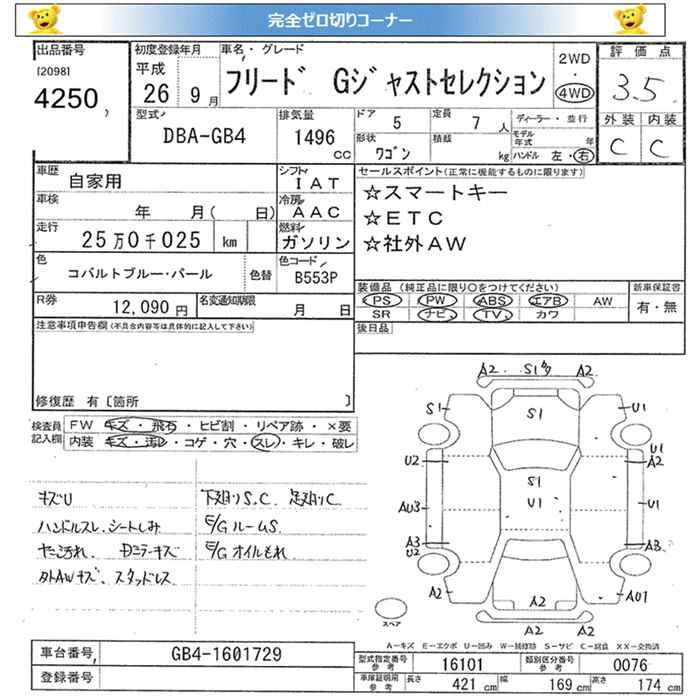 完全ゼロ切りコーナー
出品番号
[2098]
4250
初度登録年月
平成
26 9月
車名・グレード
フリード Gジャストセレクション
2WD
・
4WD
評価点
3.5
外装 内装
C C
型式
DBA-GB4
排気量
1496
cc
ドア 5
定員 7人
形状 ワゴン
積載 kg
ディーラー・並行
モデル年式 年
ハンドル 左・右
車歴 自家用
シフト IAT
車検 年 月( 日)
冷房 AAC
走行 25万0千025 km
燃料 ガソリン
色 コバルトブルー・パール
色替
色コード B553P
R券 12,090円
名変通知期限 月 日
セールスポイント(正常に機能するものに限ります)
☆スマートキー
☆ETC
☆社外AW
装備品(純正品に限り○をつけてください)
PS PW ABS エアB AW
SR ナビ TV カワ
新車保証書
有・無
後日品
注意事項申告欄(不具合内容等は具体的に記入して下さい)
修復歴 有〔箇所 〕
検査員記入欄
FW キズ・飛石・ヒビ割・リペア跡・×要
内装 キズ・汚れ・コゲ・穴・スレ・キレ・破レ
キズU
ハンドルスレ、シートしみ
ヤニ汚れ、
外AWキズ、スタッドレス
下廻りS.C、足廻りC
E/GルームS
E/Gオイルもれ
A2 S1 A2
S1 S1 U1
U2 U1 A2
S1
AU3 U1 U1
A3 A3
U2
A2 A2 AU1
A2 A2
スペア
A-キズ E-エクボ U-凹み W-補修跡 S-サビ C-腐食 XX-交換済
車台番号 GB4-1601729
登録番号
型式指定番号参考 16101
類別区分番号参考 0076
車検証明用参考
長さ 421cm
幅 169cm
高さ 174cm